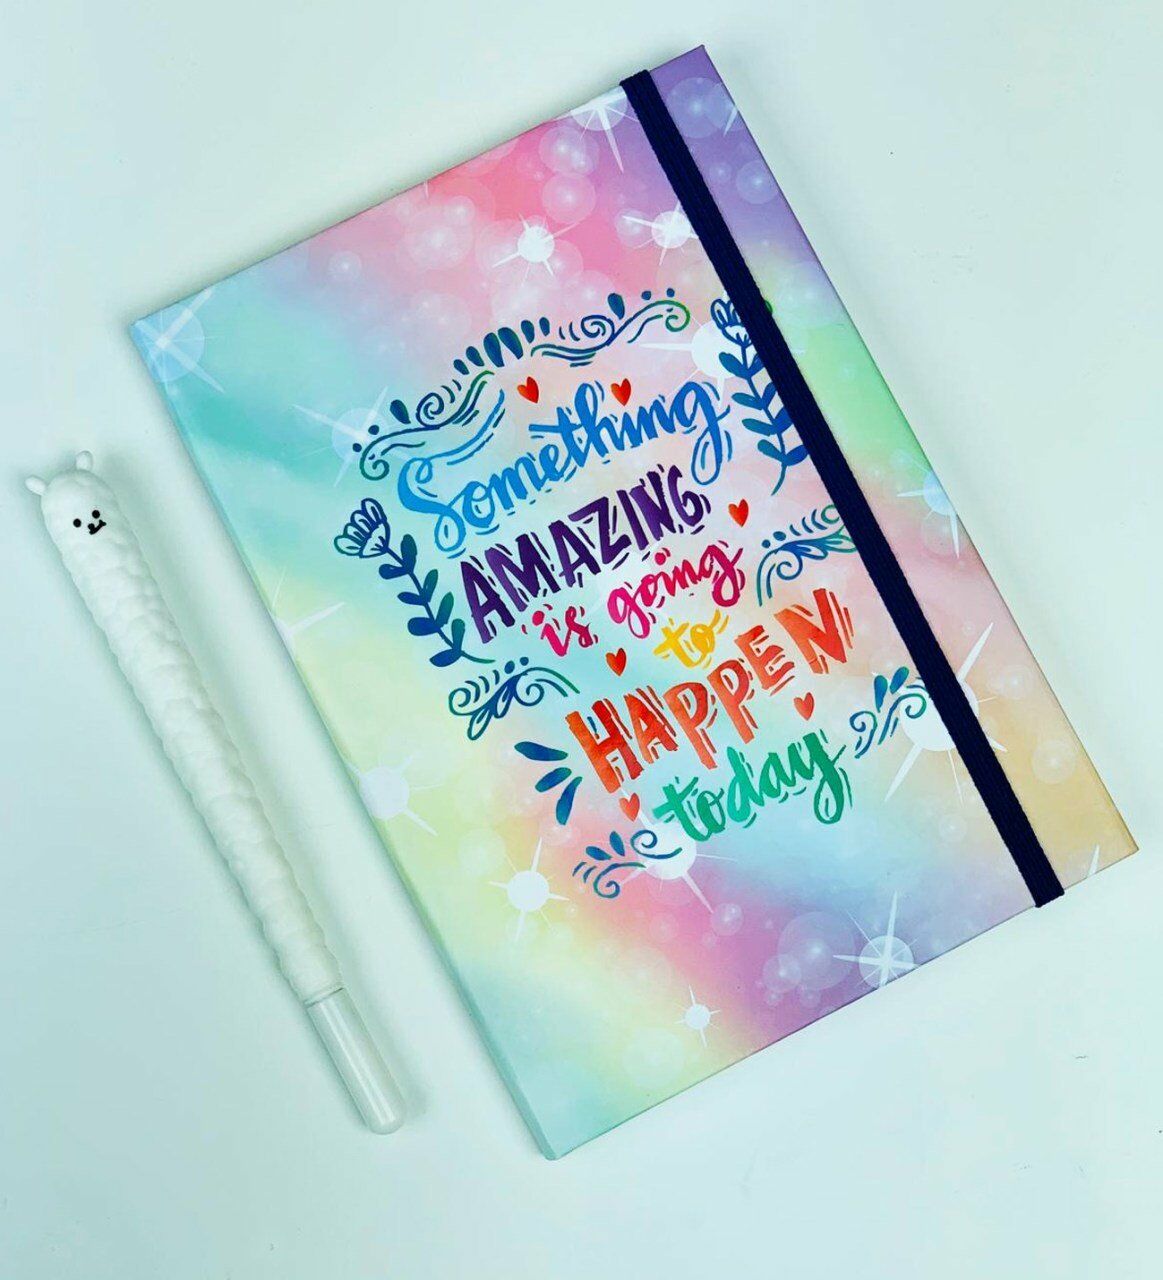 Something
AMAZING
is going
to
HAPPEN
today